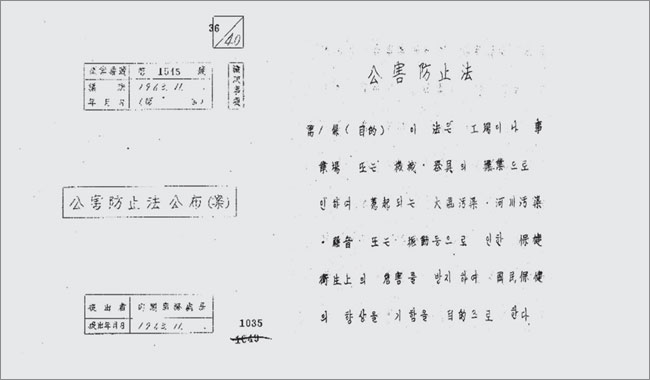 36
/40
第 1515 號
1963. 11.
年 月 日
公害防止法公布(案)
提出者
提出年月日 1963. 11.
1035
1049
公害防止法
第1條(目的) 이 法은 工場이나 事
業場 또는 機械·器具의 操業으로
인하여 惹起되는 大氣汚染·河川汚染
·騷音 또는 振動등으로 인한 保健
衛生上의 危害를 방지하여 國民保健
의 향상을 기함을 目的으로 한다.